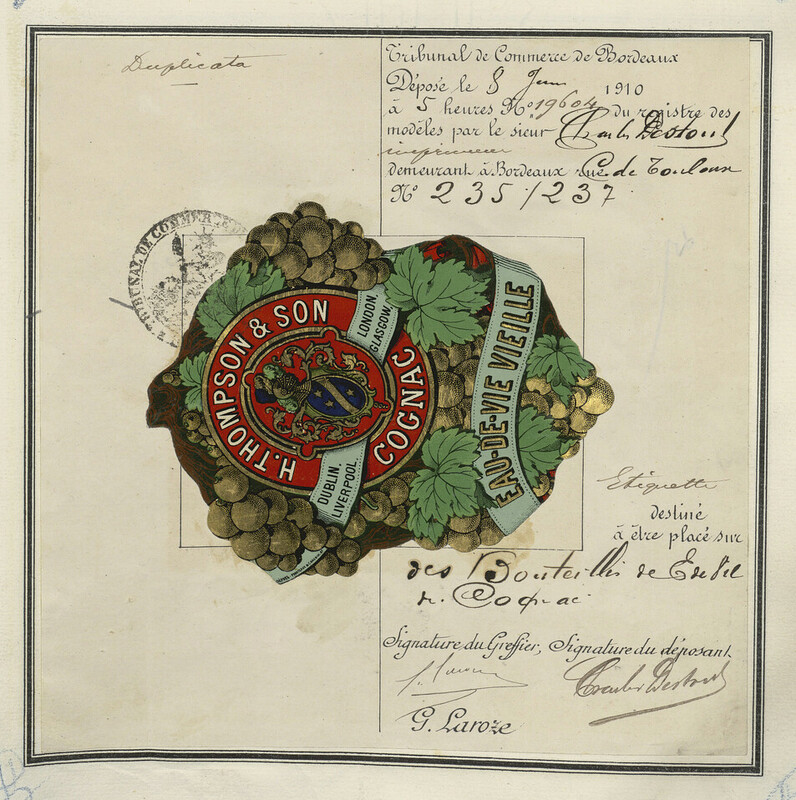 Duplicata
Tribunal de Commerce de Bordeaux
Déposé le 8 Juin 1910
à 5 heures No 19604 du registre des
modèles par le sieur Charles Destouet
imprimeur
demeurant à Bordeaux rue de Toulouse
No 235/237
TRIBUNAL DE COMMERCE DE
H. THOMPSON & SON
COGNAC
LONDON.
GLASGOW.
DUBLIN.
LIVERPOOL
EAU-DE-VIE VIEILLE
Etiquette
destiné
à être placé sur
des Bouteilles de
Cognac
Signature du Greffier, Signature du déposant
G. Laroze